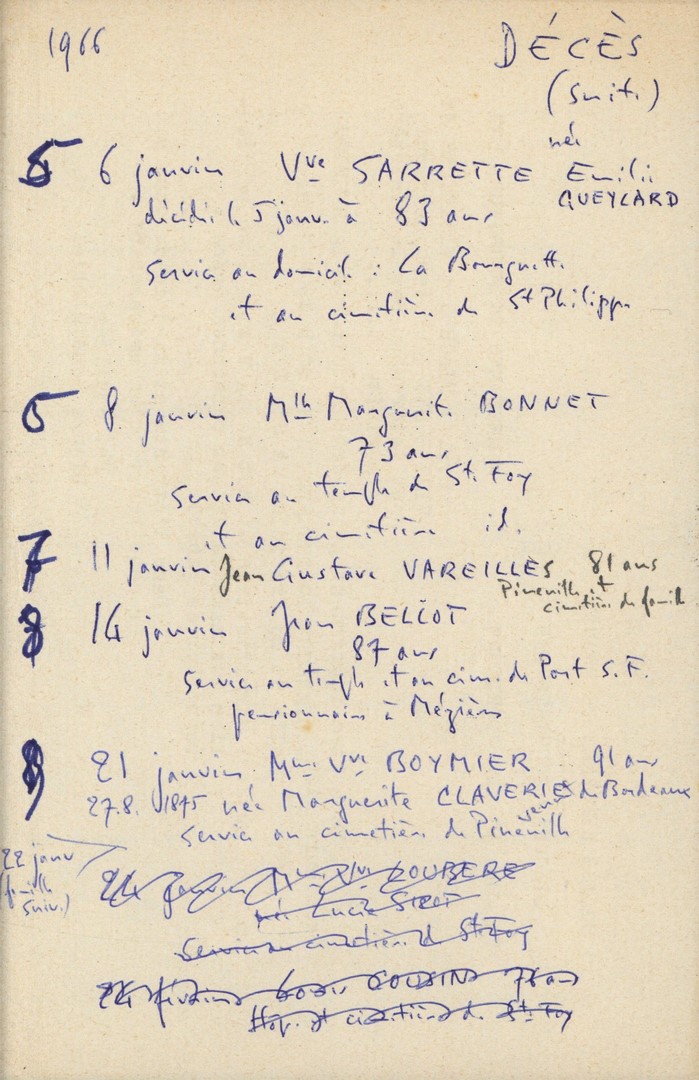 1966 DÉCÈS
(suite)
5 6 janvier Vve SARRETTE née Emilie
GUEYLARD
décédée le 5 janv. à 83 ans
service au domicile : La Bourguette
et au cimetière de St Philippe
5 8 janvier Mlle Marguerite BONNET
73 ans
service au temple de St. Foy
et au cimetière id.
7 11 janvier Jean Gustave VAREILLES 81 ans
Pineuilh et
cimetière de famille
8 14 janvier Jean BELLOT
87 ans
service au temple et au cim. de Port S. F.
pensionnaire à Mézières
9 21 janvier Mme Vve BOYMIER 91 ans
27.8. 1875 née Marguerite CLAVERIES de Bordeaux
service au cimetière de Pineuilh
22 janv
(feuille
suiv.)
24 janvier Mme Vve LOUBERE
née Lucie
service au cimetière de St. Foy
24 janvier Louis COUSINS 78 ans
Hop. et cimetière de St. Foy